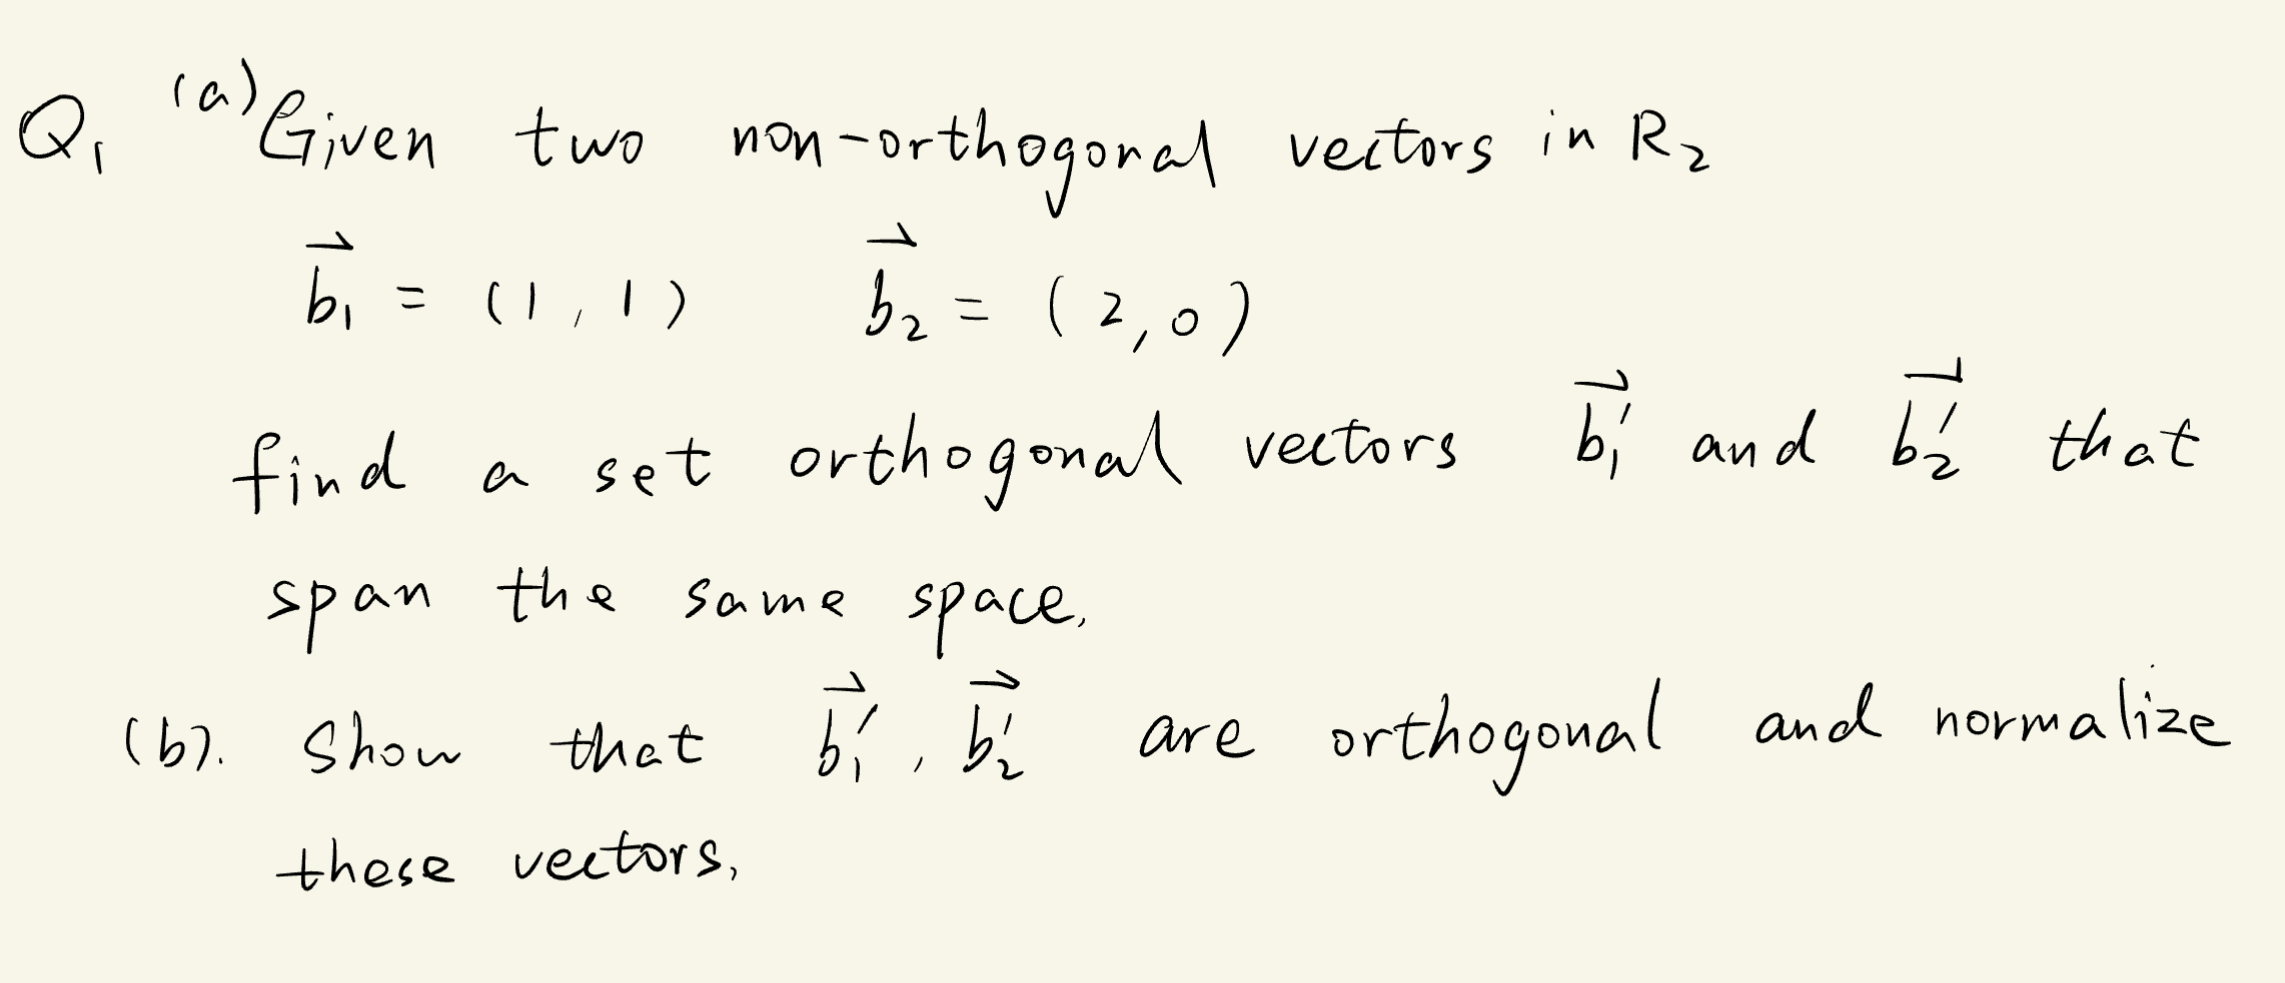 Q₁ (a) Given two non-orthogonal vectors in R₂
b⃗₁ = (1, 1) b⃗₂ = (2, 0)
find a set orthogonal vectors b⃗₁′ and b⃗₂′ that
span the same space.
(b). Show that b⃗₁′, b⃗₂′ are orthogonal and normalize
these vectors.